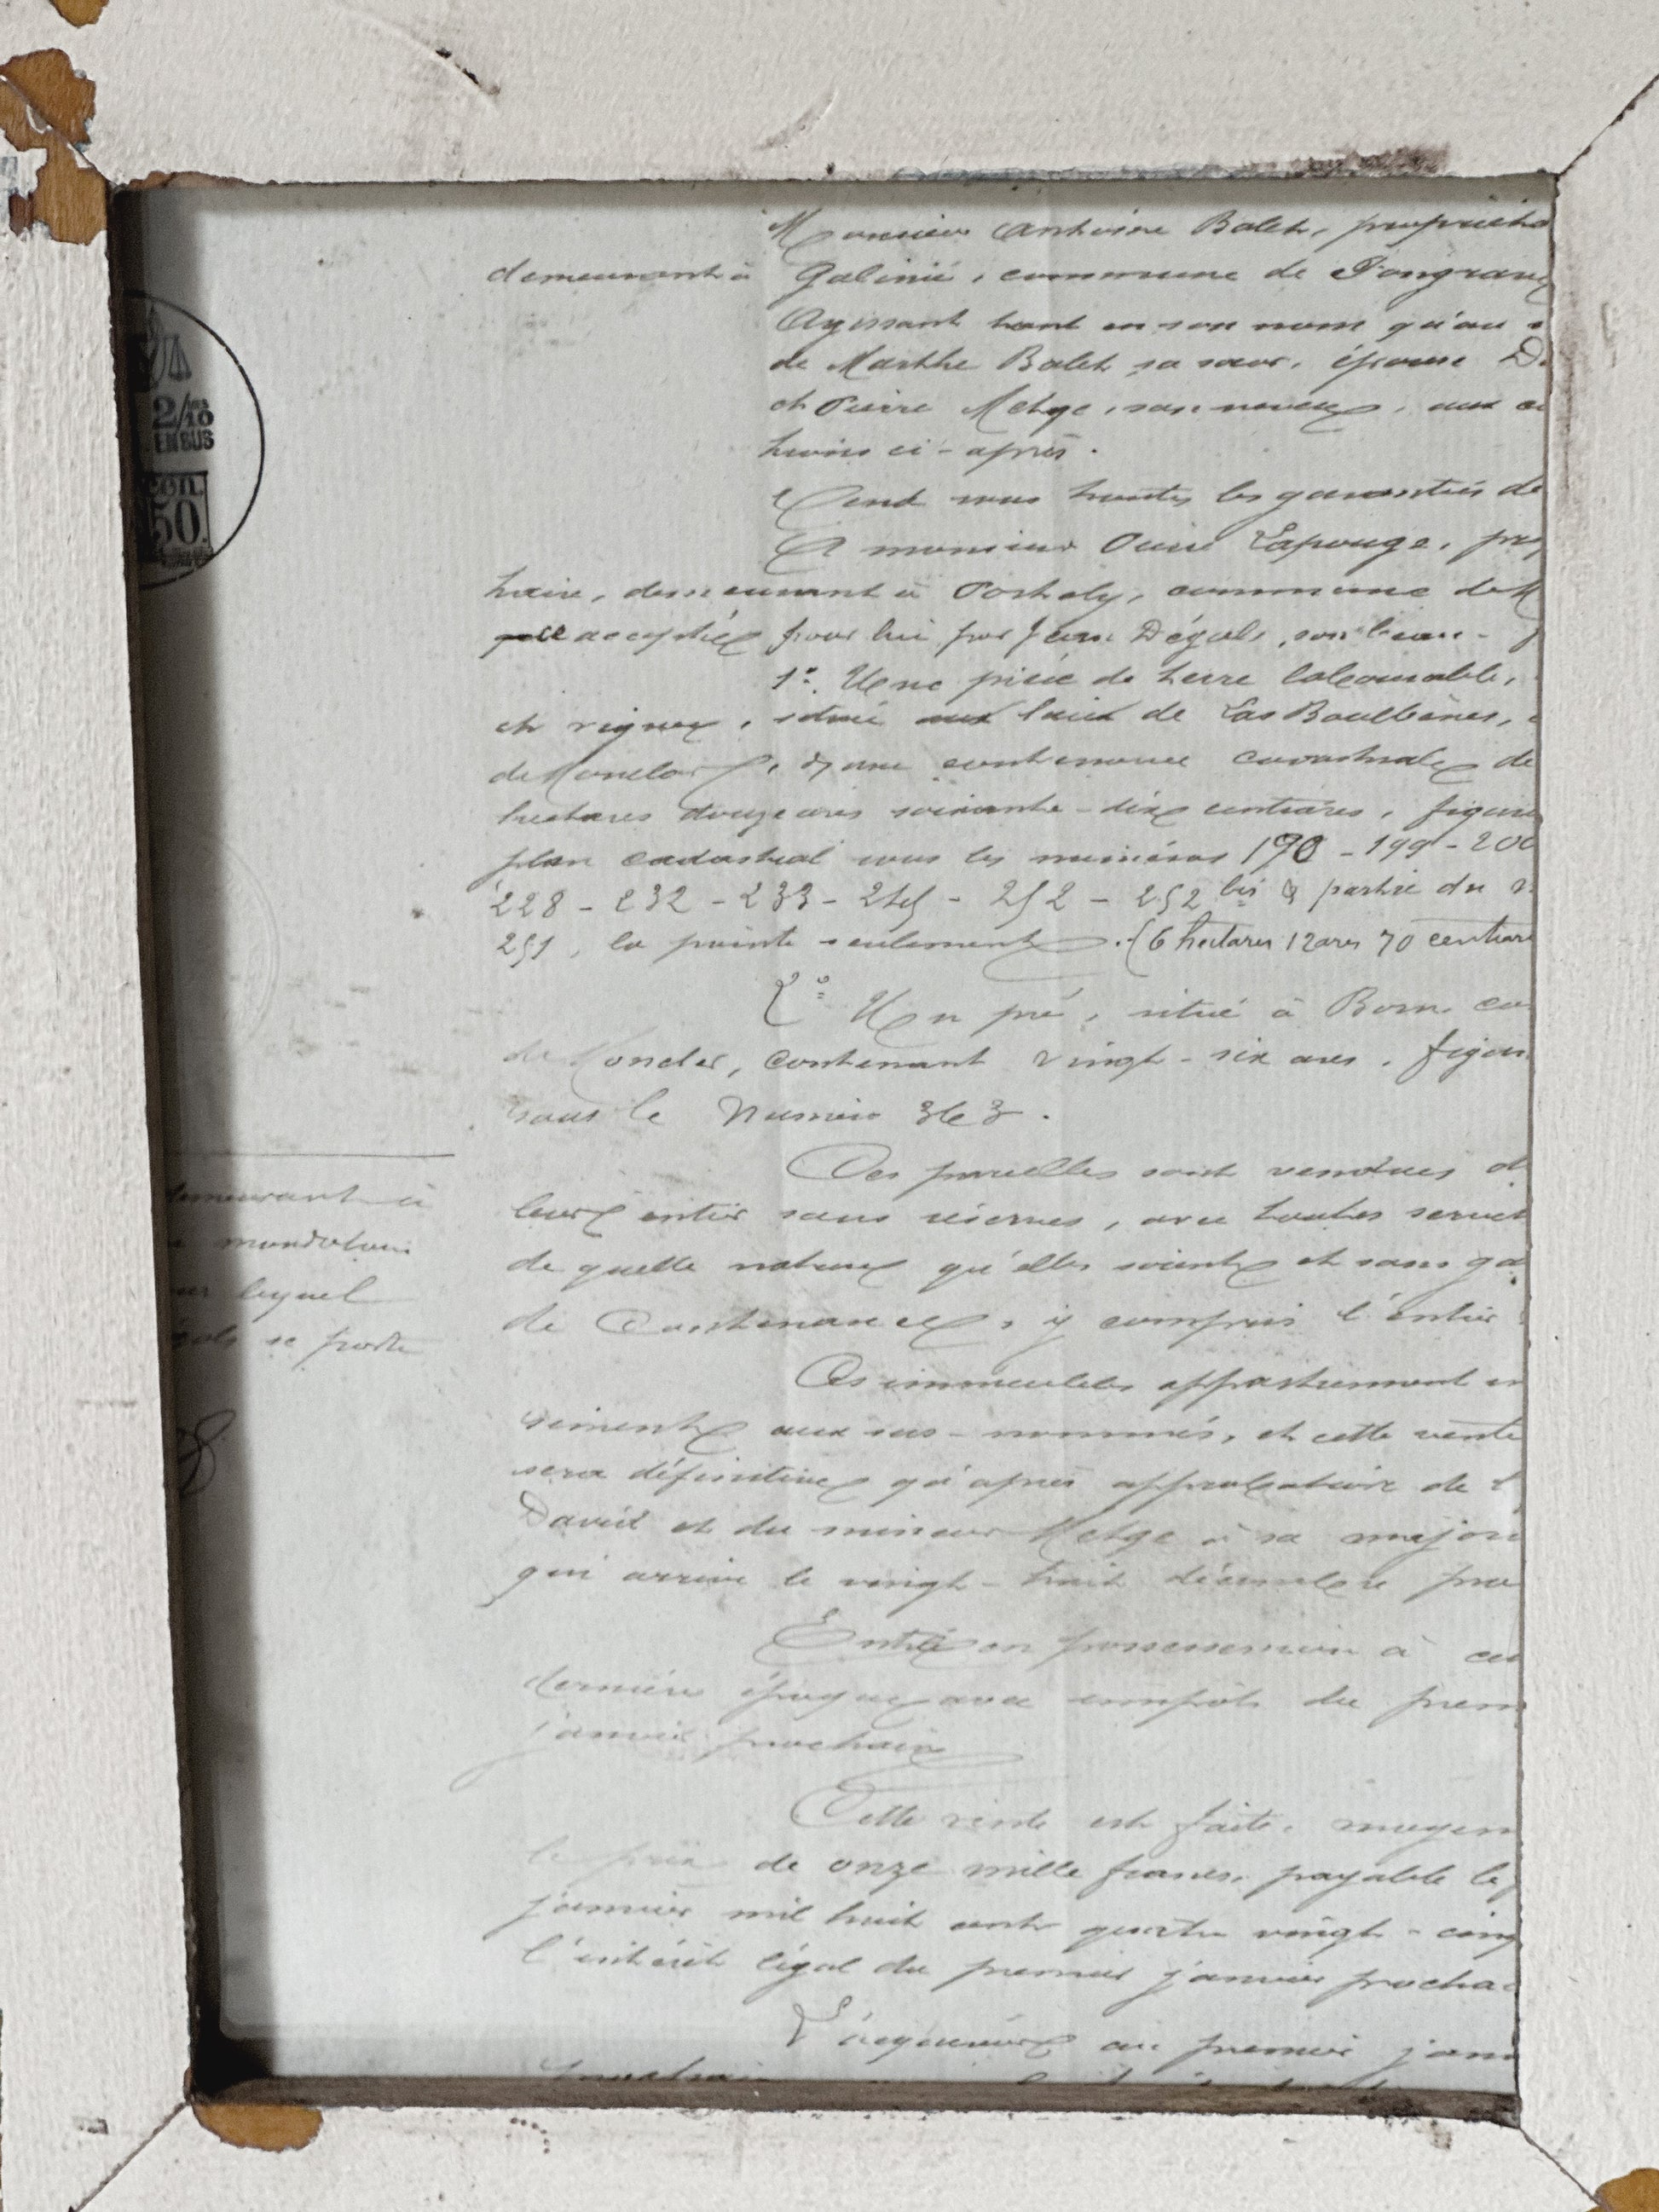 2/10
EN SUS
50.
Monsieur Antoine Balet, propriéta
demeurant à Galinié, commune de
Agissant tant en son nom qu'au
de Marthe Balet sa sœur, épouse D
et Pierre Metge, son neveu, aux
ci-après.
Vend sous toutes les garanties de
A monsieur Lapouge, pro
taire, demeurant à commune de M
acceptée pour lui par Jean Dégals, son beau-
1º. Une pièce de terre labourable,
et vigne, située aux lieux de Las Boulbènes,
de Monclar, d'une contenance cadastrale de
hectares douze ares soixante-dix centiares, figura
plan cadastral sous les numéros 190 - 199 - 200
228 - 232 - 233 - 245 - 252 - 252 bis & partie du n
251, la pointe seulement. (6 hectares 12 ares 70 centiare
2º Un pré, situé à Born, co
de Monclar, contenant vingt-six ares, figur
sous le Numéro 363.
Ces parcelles sont vendues d
leur entier sans réserves, avec toutes servit
de quelle nature qu'elles soient et sans ga
de Contenance, y compris l'entier
demeurant à
mandataire
lequel
se porte
Ces immeubles appartiennent in
sément aux sus-nommés, et cette vente
sera définitive qu'après approbation de
David et du mineur Metge à sa majori
qui arrive le vingt-huit décembre pro
Entrée en possession à ce
dernière époque avec impôts du prem
janvier prochain
Cette vente est faite, moyen
le prix de onze mille francs, payable le
janvier mil huit cent quatre vingt-cinq
l'intérêt légal du premier janvier procha
L'acquéreur au premier jan